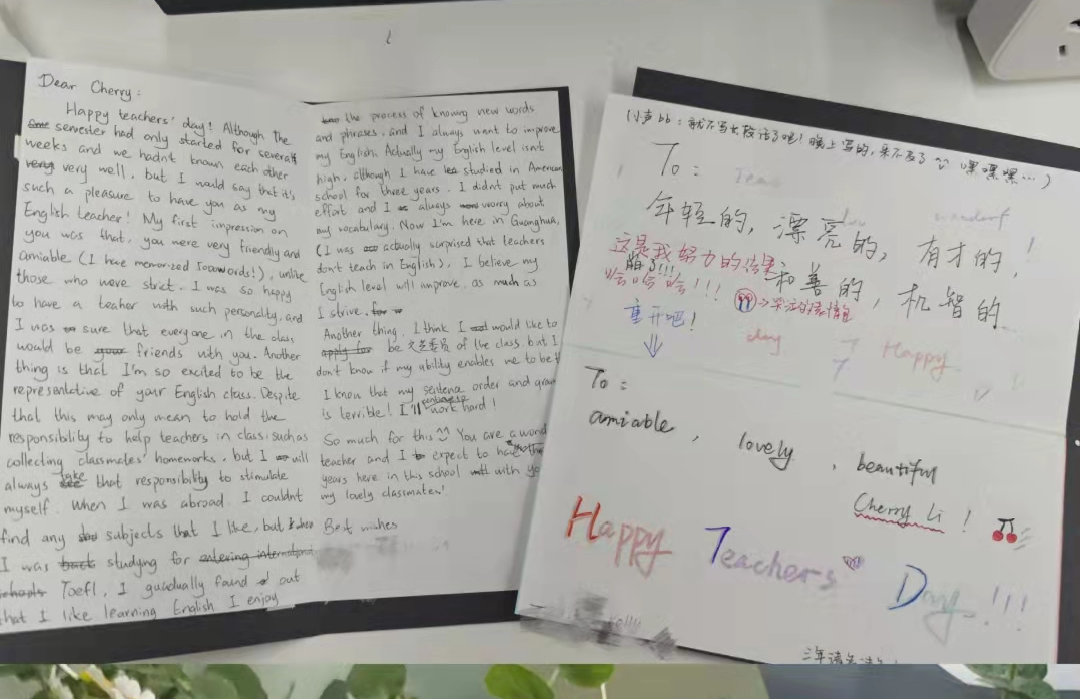 Dear Cherry:
Happy teachers' day! Although the
semester had only started for several
weeks and we hadnt known each other
very well, but I would say that it's
such a pleasure to have you as my
English teacher! My first impression on
you was that, you were very friendly and
amiable (I have memorized 1000words!), unlike
those who were strict. I was so happy
to have a teaher with such personality, and
I was sure that everyone in the class
would be friends with you. Another
thing is that I'm so excited to be the
representative of your English class. Despite
that this may only mean to hold the
responsibility to help teachers in class, such as
collecting classmates' homeworks, but I will
always take that responsibility to stimulate
myself. When I was abroad, I couldn't
find any subjects that I like, but when
I was studying for entering international
schools Toefl, I guadually found out
that I like learning English I enjoy
the process of knowing new words
and phrases, and I always want to improve
my English. Actually my English level isn't
high, although I have studied in American
school for three years. I didn't put much
effort and I always worry about
my vocatulary. Now I'm here in Guanghua,
(I was actually surprised that teachers
don't teach in English), I believe my
English level will improve as much as
I strive.
Another thing, I think I would like to
apply for be 文艺委员 of the class, but I
don't know if my ability enables me to be
I know that my sentence order and gram
is terrible! I'll work hard!
So much for this You are a wond
teacher and I expect to have
years here in this school with yo
my lovely classmates.
Best wishes
(小声bb: 就不写太多话了呢! 晚上写的, 来不及了 嘿嘿嘿…)
To:
年轻的, 漂亮的, 有才的,
这是我努力的结果
和善的, 机智的
崩了!!!
哈哈哈!!!
重开吧!
day
Happy
To:
amiable, lovely, beautiful
Cherry Li!
Happy Teachers Day!!!